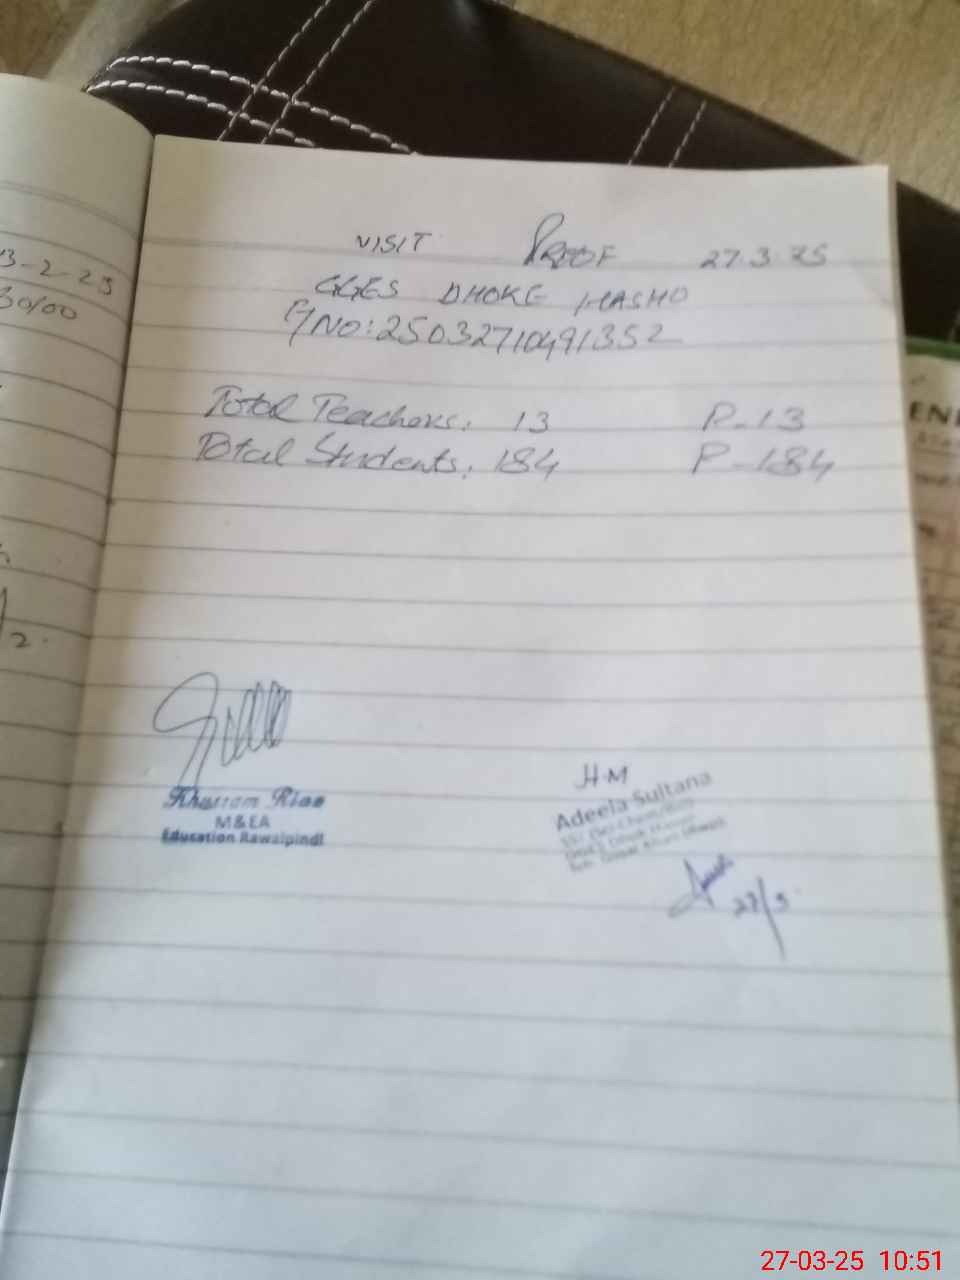 3-2-25
VISIT PROOF 27.3.25
GGES DHOKE HASHO
P/NO: 25032710491352
Total Teachers: 13 P-13
Total Students: 184 P-184
2.
Khurram Riaz
M&EA
Education Rawalpindi
H.M
Adeela Sultana
27/3
27-03-25 10:51